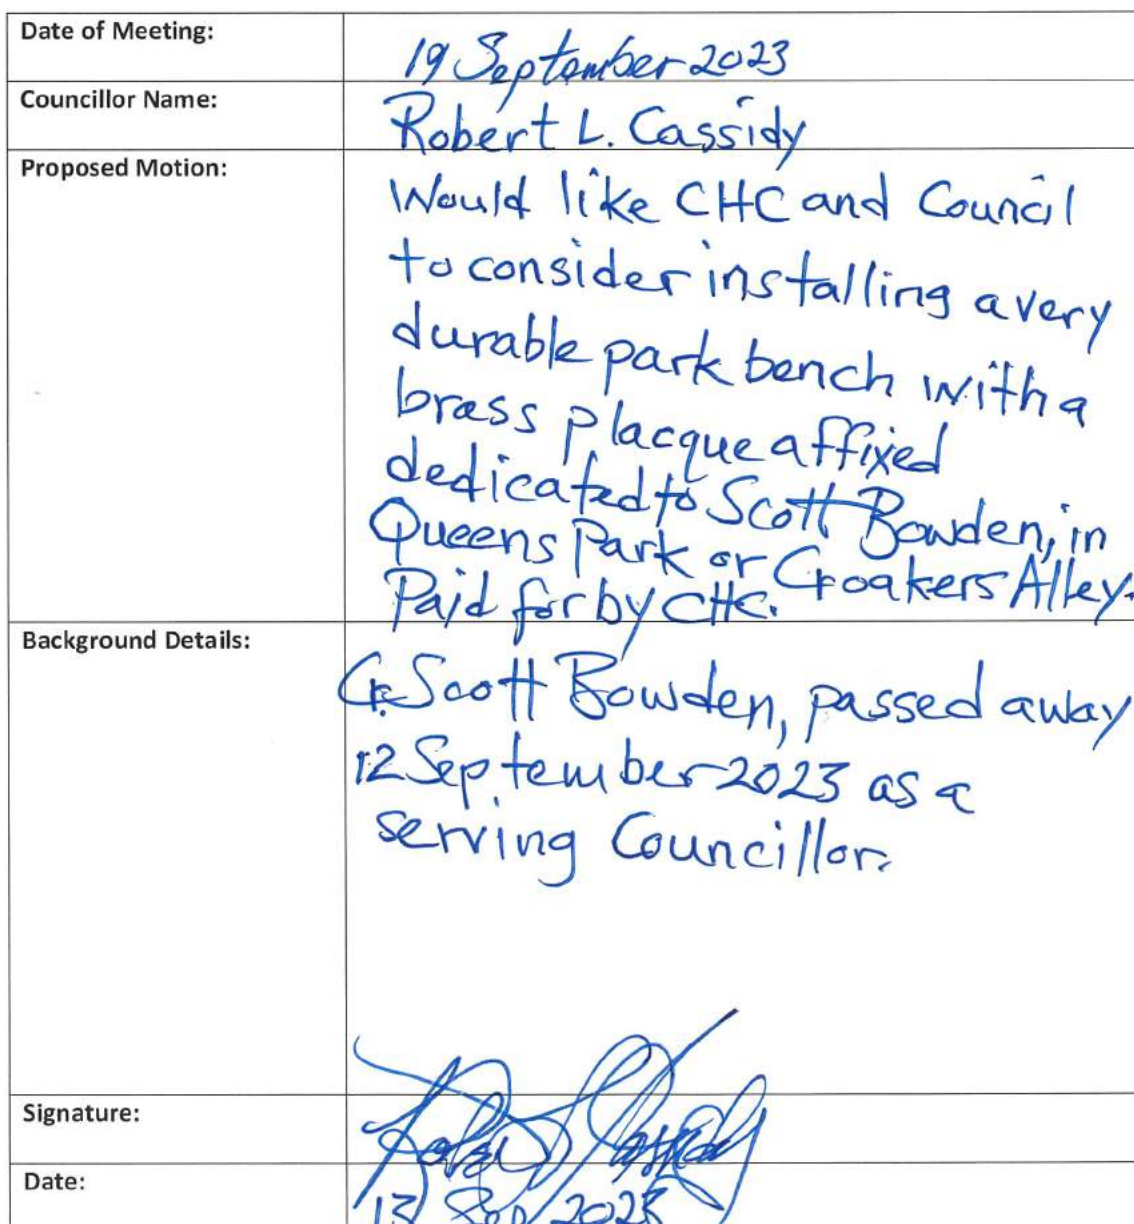 Date of Meeting:
19 September 2023
Councillor Name:
Robert L. Cassidy
Proposed Motion:
Would like CHC and Council
to consider installing a very
durable park bench with a
brass placque affixed
dedicated to Scott Bowden, in
Queens Park or Croakers Alley.
Paid for by CHC.
Background Details:
Cr. Scott Bowden, passed away
12 September 2023 as a
serving Councillor.
Signature:
Robert L Cassidy
Date:
13 Sep 2023